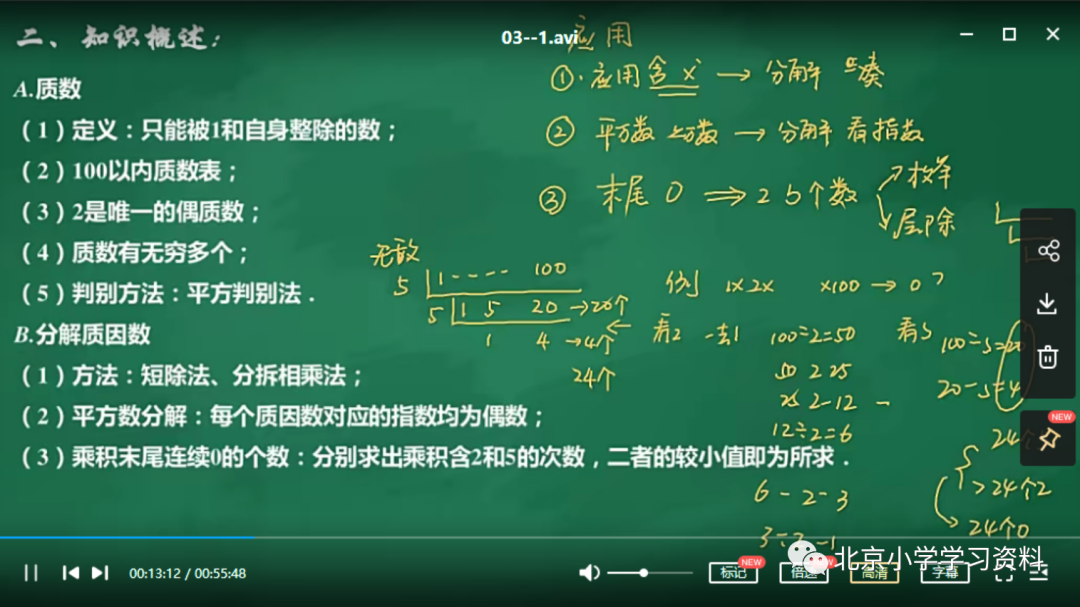 二、知识概述：
03--1.avi
应用
A.质数
（1）定义：只能被1和自身整除的数；
（2）100以内质数表；
（3）2是唯一的偶质数；
（4）质数有无穷多个；
（5）判别方法：平方判别法．
B.分解质因数
（1）方法：短除法、分拆相乘法；
（2）平方数分解：每个质因数对应的指数均为偶数；
（3）乘积末尾连续0的个数：分别求出乘积含2和5的次数，二者的较小值即为所求．
①·应用含义 → 分解 凑
② 平方数 立方数 → 分解 看指数
③ 末尾 0 ⇒ 2 5个数
枚举
层除
5 1 ---- 100
5 1 5 20 → 20个
1 4 → 4个
24个
例 1×2× ×100 → 0?
看2 100÷2=50
50 2 25
25 2-12
12÷2=6
6-2-3
看5 100÷5=20
20-5=4
24个
>24个2
24个0
00:13:12 / 00:55:48
标记
NEW
倍速
高清
字幕
NEW
北京小学学习资料